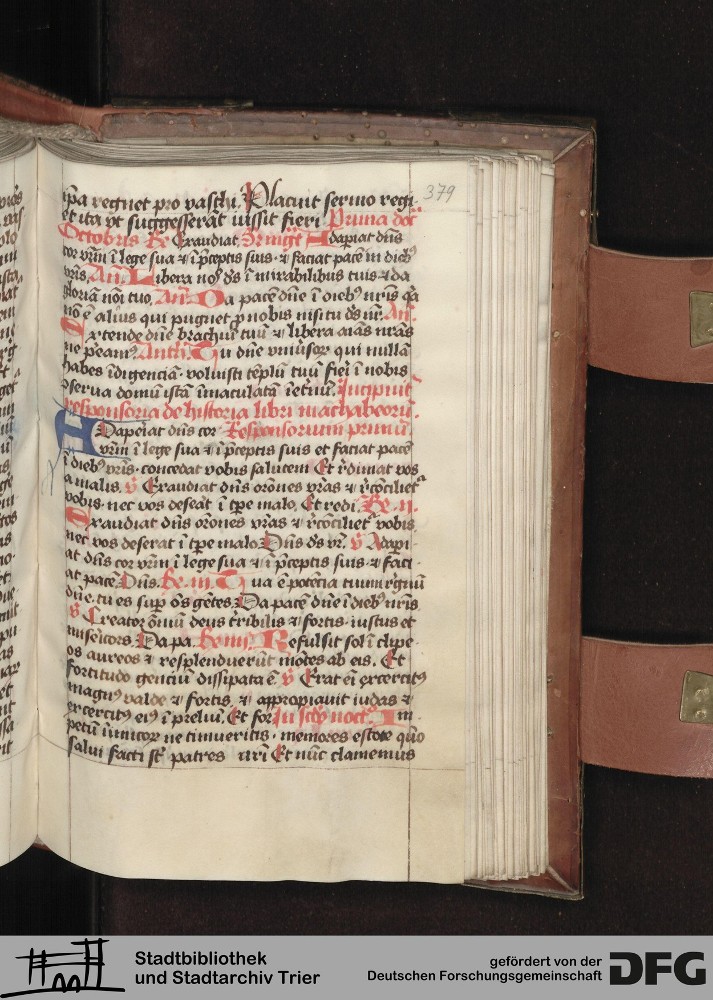 379
ip̄a regnet pro vasthi. Placuit sermo regi.
et ita vt suggesserāt iussit fieri Prima dōc
Octobris Rē Exaudiat. Adapiat dn̄s
cor vr̄m ī lege sua ⁊ ī p̄ceptis suis ⁊ faciat pacē in dieb⁹
vr̄is. An̄. Libera nos ds̄ ī mirabilibus tuis ⁊ da
gloriā nōi tuo. An̄. Da pacē dn̄e ī dieb⁹ nr̄is q̄a
nō ē alius qui pugnet p̄ nobis nisi tu ds̄ nr̄. An̄.
Extende dn̄e brachiū tuū ⁊ libera aīas nr̄as
ne peam⁹ Anth. Tu dn̄e vniūsor qui nullā
habes īdigenciā voluisti tēplū tuū fieri ī nobis
p̄serua domū istā īmaculatā īetnū. Incipiūt
responsoria de historia libri machabeorū.
Adaperiat dn̄s cor Responsorium primū.
vr̄m ī lege sua ⁊ ī p̄ceptis suis et faciat pacē
ī dieb⁹ vr̄is. concedat vobis salutem Et r̄dimat vos
a malis. v̄ Exaudiat dn̄s orōnes vr̄as ⁊ r̄cōcilietᷣ
vobis. nec vos deseāt ī tp̄e malo. Et redi. Rē. ii.
Exaudiat dn̄s orōnes vr̄as ⁊ r̄cōcilietᷣ vobis
nec vos deserat ī tp̄e malo Dn̄s ds̄ vr̄. v̄ Adapi-
at dn̄s cor vr̄m ī lege sua ⁊ ī p̄ceptis suis ⁊ faci-
at pacē Dn̄s. Rē. iii. Tua ē potēcia tuum r̄gnū
dn̄e. tu es sup̄ oēs gētes. Da pacē dn̄e ī dieb⁹ nr̄is
v̄ Creator ōniū deus tr̄ribilis ⁊ fortis. iustus et
misericors. Da pa. Refulsit sol ī clipe-
os aureos ⁊ resplenduerūt mōtes ab eis. Et
fortitudo genciū dissipata ē. v̄ Erat eī exercit⁹
magn⁹ valde ⁊ fortis. ⁊ appropiauit iudas ⁊
exercit⁹ ei⁹ ī preliū. Et for In sc̄do noct. Im-
petū īimicor̄ ne timueritis. memores estote quō
salui facti sr̄ patres nr̄i Et nūc clamemus
Stadtbibliothek
und Stadtarchiv Trier
gefördert von der
Deutschen Forschungsgemeinschaft
DFG